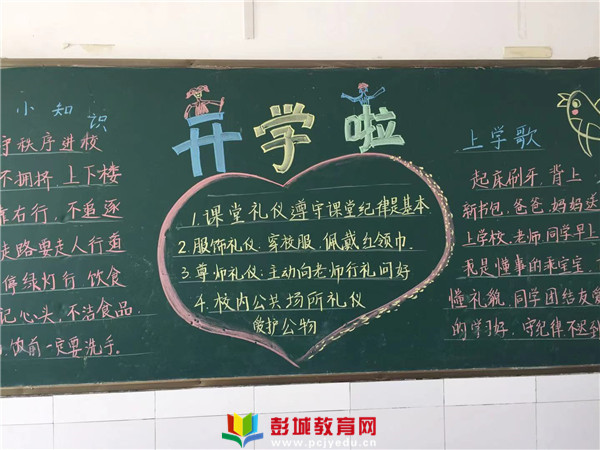 小知识
守秩序进校
不拥挤.上下楼
靠右行,不追逐
走路要走人行道
停绿灯行.饮食
记心头,不洁食品.
饭前一定要洗手.
开学啦
1.课堂礼仪遵守课堂纪律是基本
2.服饰礼仪:穿校服.佩戴红领巾.
3.尊师礼仪:主动向老师行礼问好
4.校内公共场所礼仪
爱护公物
上学歌
起床刷牙,背上
新书包,爸爸,妈妈送
上学校.老师,同学早上
我是懂事的乖宝宝.
懂礼貌.同学团结友爱
的学习好,守纪律,不迟到
彭城教育网
www.pcjyedu.cn